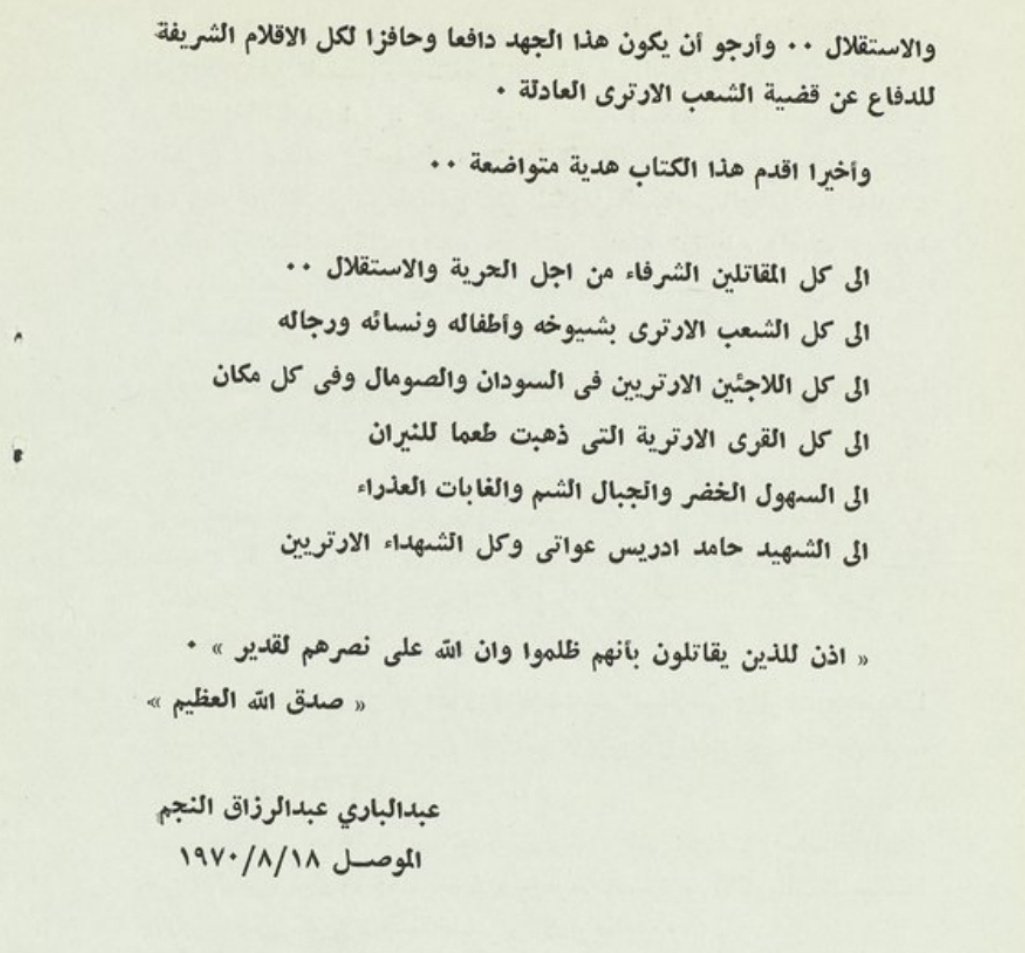 والاستقلال ٠٠ وأرجو أن يكون هذا الجهد دافعا وحافزا لكل الاقلام الشريفة
للدفاع عن قضية الشعب الارترى العادلة ٠
وأخيرا اقدم هذا الكتاب هدية متواضعة ٠٠
الى كل المقاتلين الشرفاء من اجل الحرية والاستقلال ٠٠
الى كل الشعب الارترى بشيوخه وأطفاله ونسائه ورجاله
الى كل اللاجئين الارتريين فى السودان والصومال وفى كل مكان
الى كل القرى الارترية التى ذهبت طعما للنيران
الى السهول الخضر والجبال الشم والغابات العذراء
الى الشهيد حامد ادريس عواتى وكل الشهداء الارتريين
« اذن للذين يقاتلون بأنهم ظلموا وان الله على نصرهم لقدير » ٠
« صدق الله العظيم »
عبدالباري عبدالرزاق النجم
الموصــل ١٩٧٠/٨/١٨